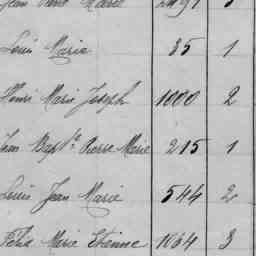 Louis Marie 35 1
Henri Marie Joseph 1000 2
Jean Bapt.te Pierre Marie 215 1
Louis Jean Marie 544 2
Félix Marie Etienne 1664 3